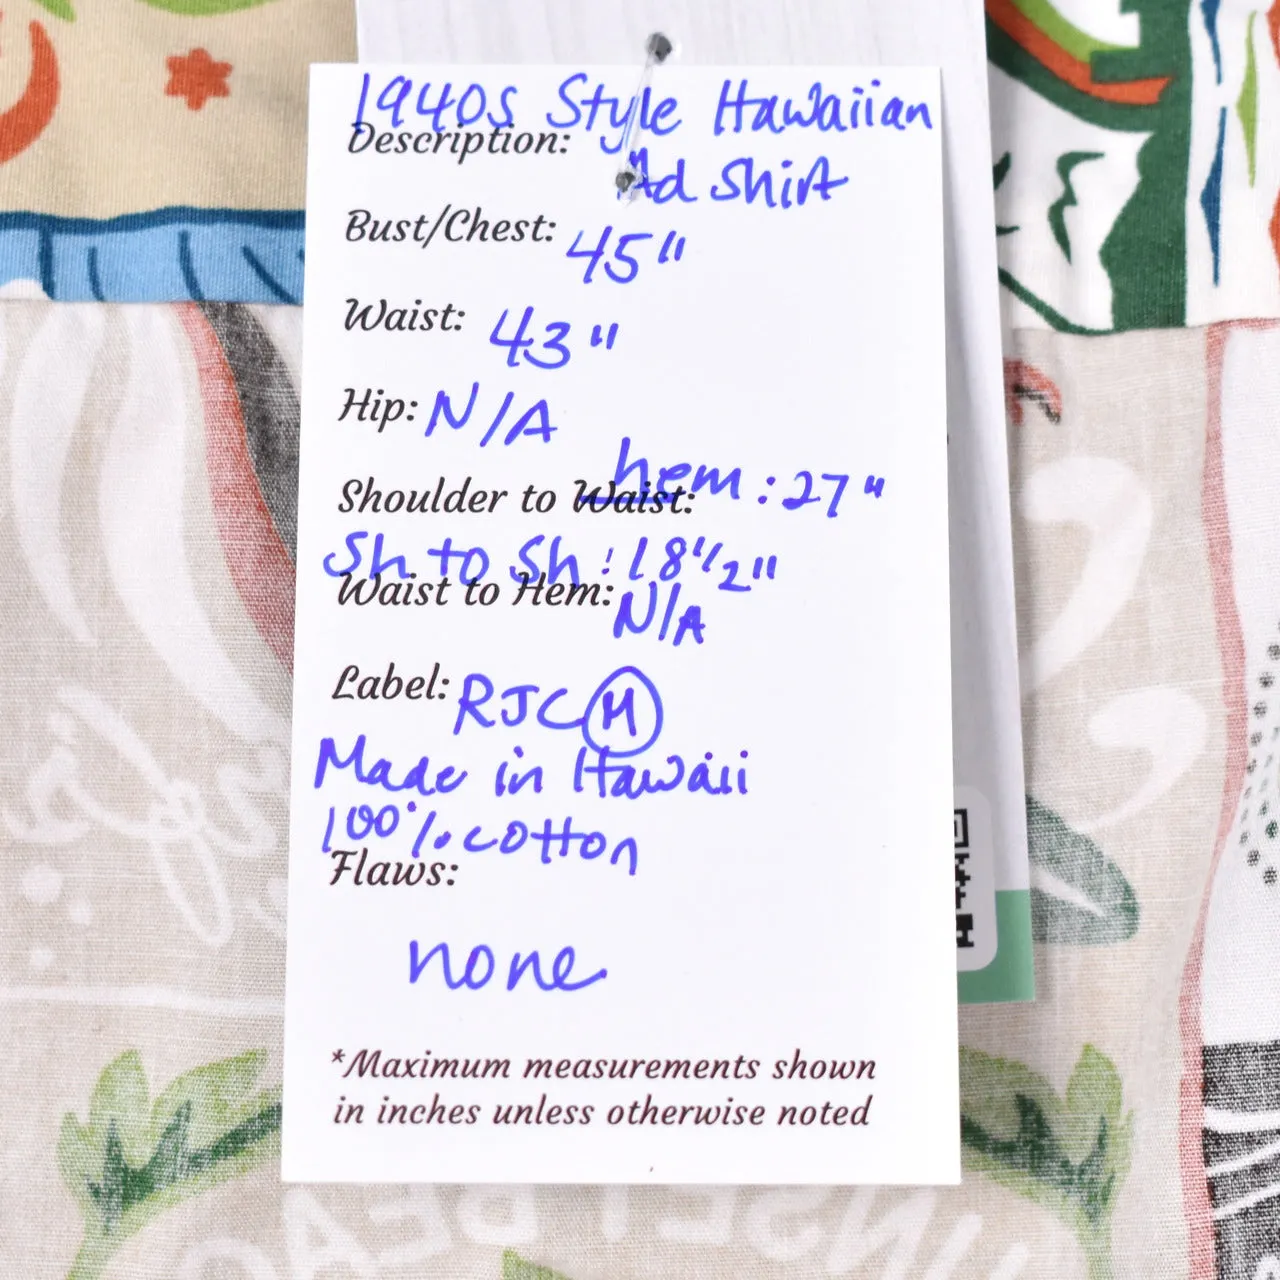 1940s Style Hawaiian
Description: Ad Shirt
Bust/Chest: 45"
Waist: 43"
Hip: N/A
Shoulder to Waist: hem: 27"
Sh to Sh: 18 1/2"
Waist to Hem: N/A
Label: RJC M
Made in Hawaii
100% cotton
Flaws:
none
*Maximum measurements shown
in inches unless otherwise noted